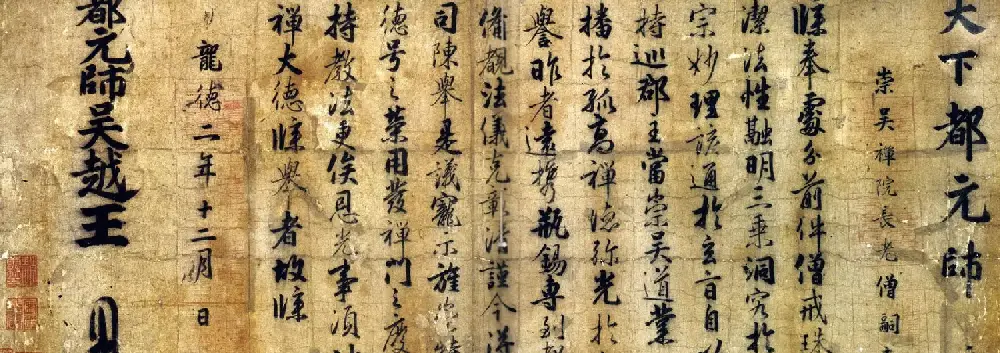 天下都元帥
崇吳禪院長老僧嗣
牒奉處分前件僧戒珠
潔法性融明三乘洞究於
宗妙理該通於玄旨自
持巡郡主當崇吳道業
播於孤高禪德弥光於
譽昨者遠携瓶錫專到
備觀法儀克彰謹今得
司陳舉是議寵示旌
德号之榮用發禪門之慶
持教法更俟恩光事須
禪大德牒舉者故牒
龍德二年十二月 日
都元帥吳越王